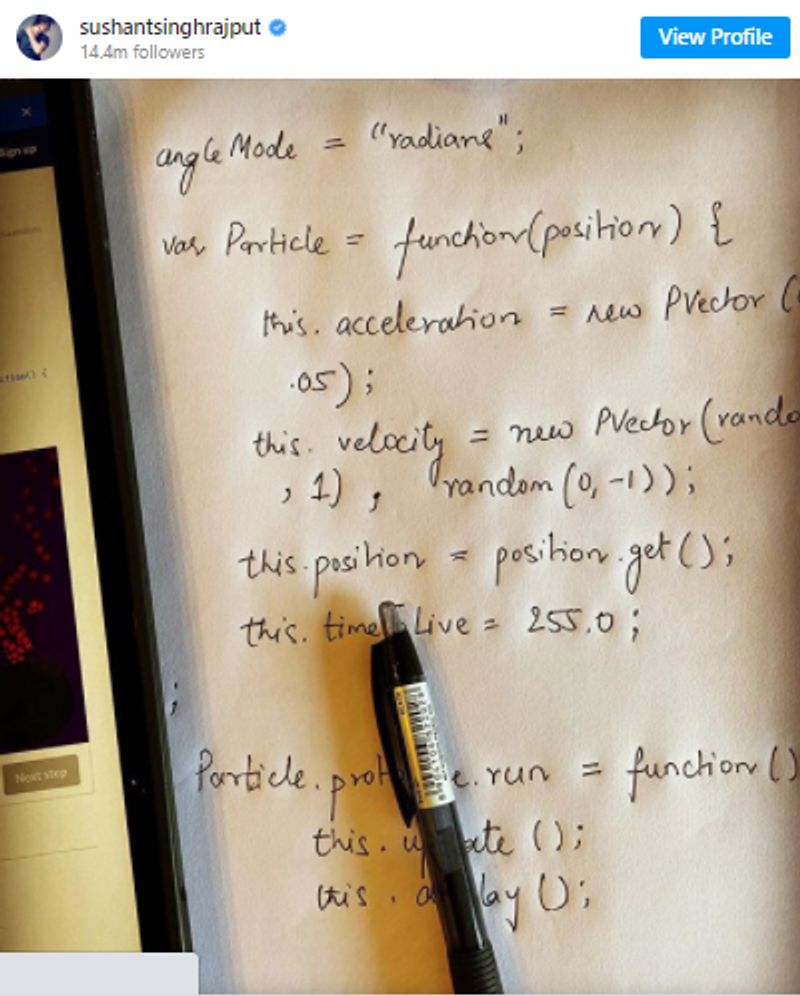 sushantsinghrajput
14.4m followers
View Profile
Sign up
angleMode = "radians";
var Particle = function(position) {
this. acceleration = new PVector (
.05);
this. velocity = new PVector(rando
, 1) , random(0, -1));
this.position = position.get();
this. time Live = 255.0 ;
;
Next step
Particle.prot e.run = function ()
this. up ate ();
this . lay ();